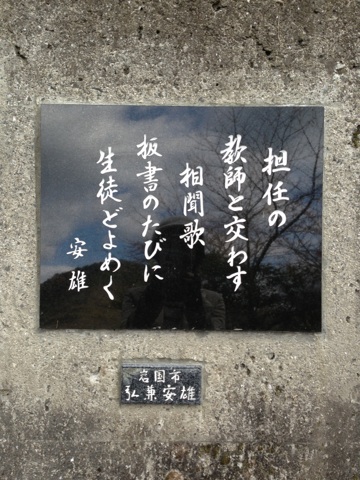 担任の
教師と交わす
相聞歌
板書のたびに
生徒どよめく
安雄
岩国市
弘兼安雄